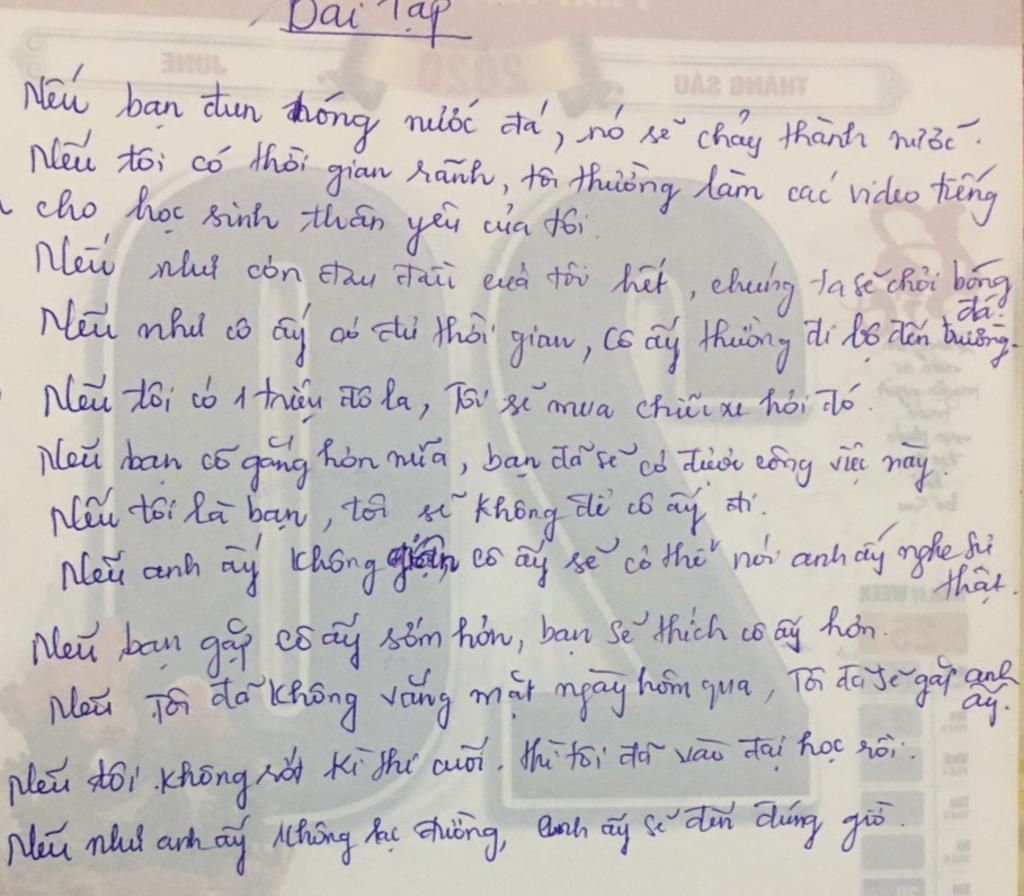 Bài Tập
Nếu bạn đun nóng nước đá, nó sẽ chảy thành nước.
Nếu tôi có thời gian rãnh, tôi thường làm các video tiếng
cho học sinh thân yêu của tôi.
Nếu như cơn đau đầu của tôi hết, chúng ta sẽ chơi bóng
đá.
Nếu như cô ấy có đủ thời gian, cô ấy thường đi bộ đến trường.
Nếu tôi có 1 triệu đô la, Tôi sẽ mua chiếc xe hơi đó.
Nếu bạn cố gắng hơn nữa, bạn đã sẽ có được công việc này.
Nếu tôi là bạn, tôi sẽ không để cô ấy đi.
Nếu anh ấy không giận cô ấy sẽ có thể nói anh ấy nghe sự
thật.
Nếu bạn gặp cô ấy sớm hơn, bạn sẽ thích cô ấy hơn.
Nếu Tôi đã không vắng mặt ngày hôm qua, Tôi đã sẽ gặp anh
ấy.
Nếu tôi không rớt kì thi cuối. thì tôi đã vào đại học rồi.
Nếu như anh ấy không lạc đường, anh ấy sẽ đến đúng giờ.
2020
THÁNG SÁU
JUNE